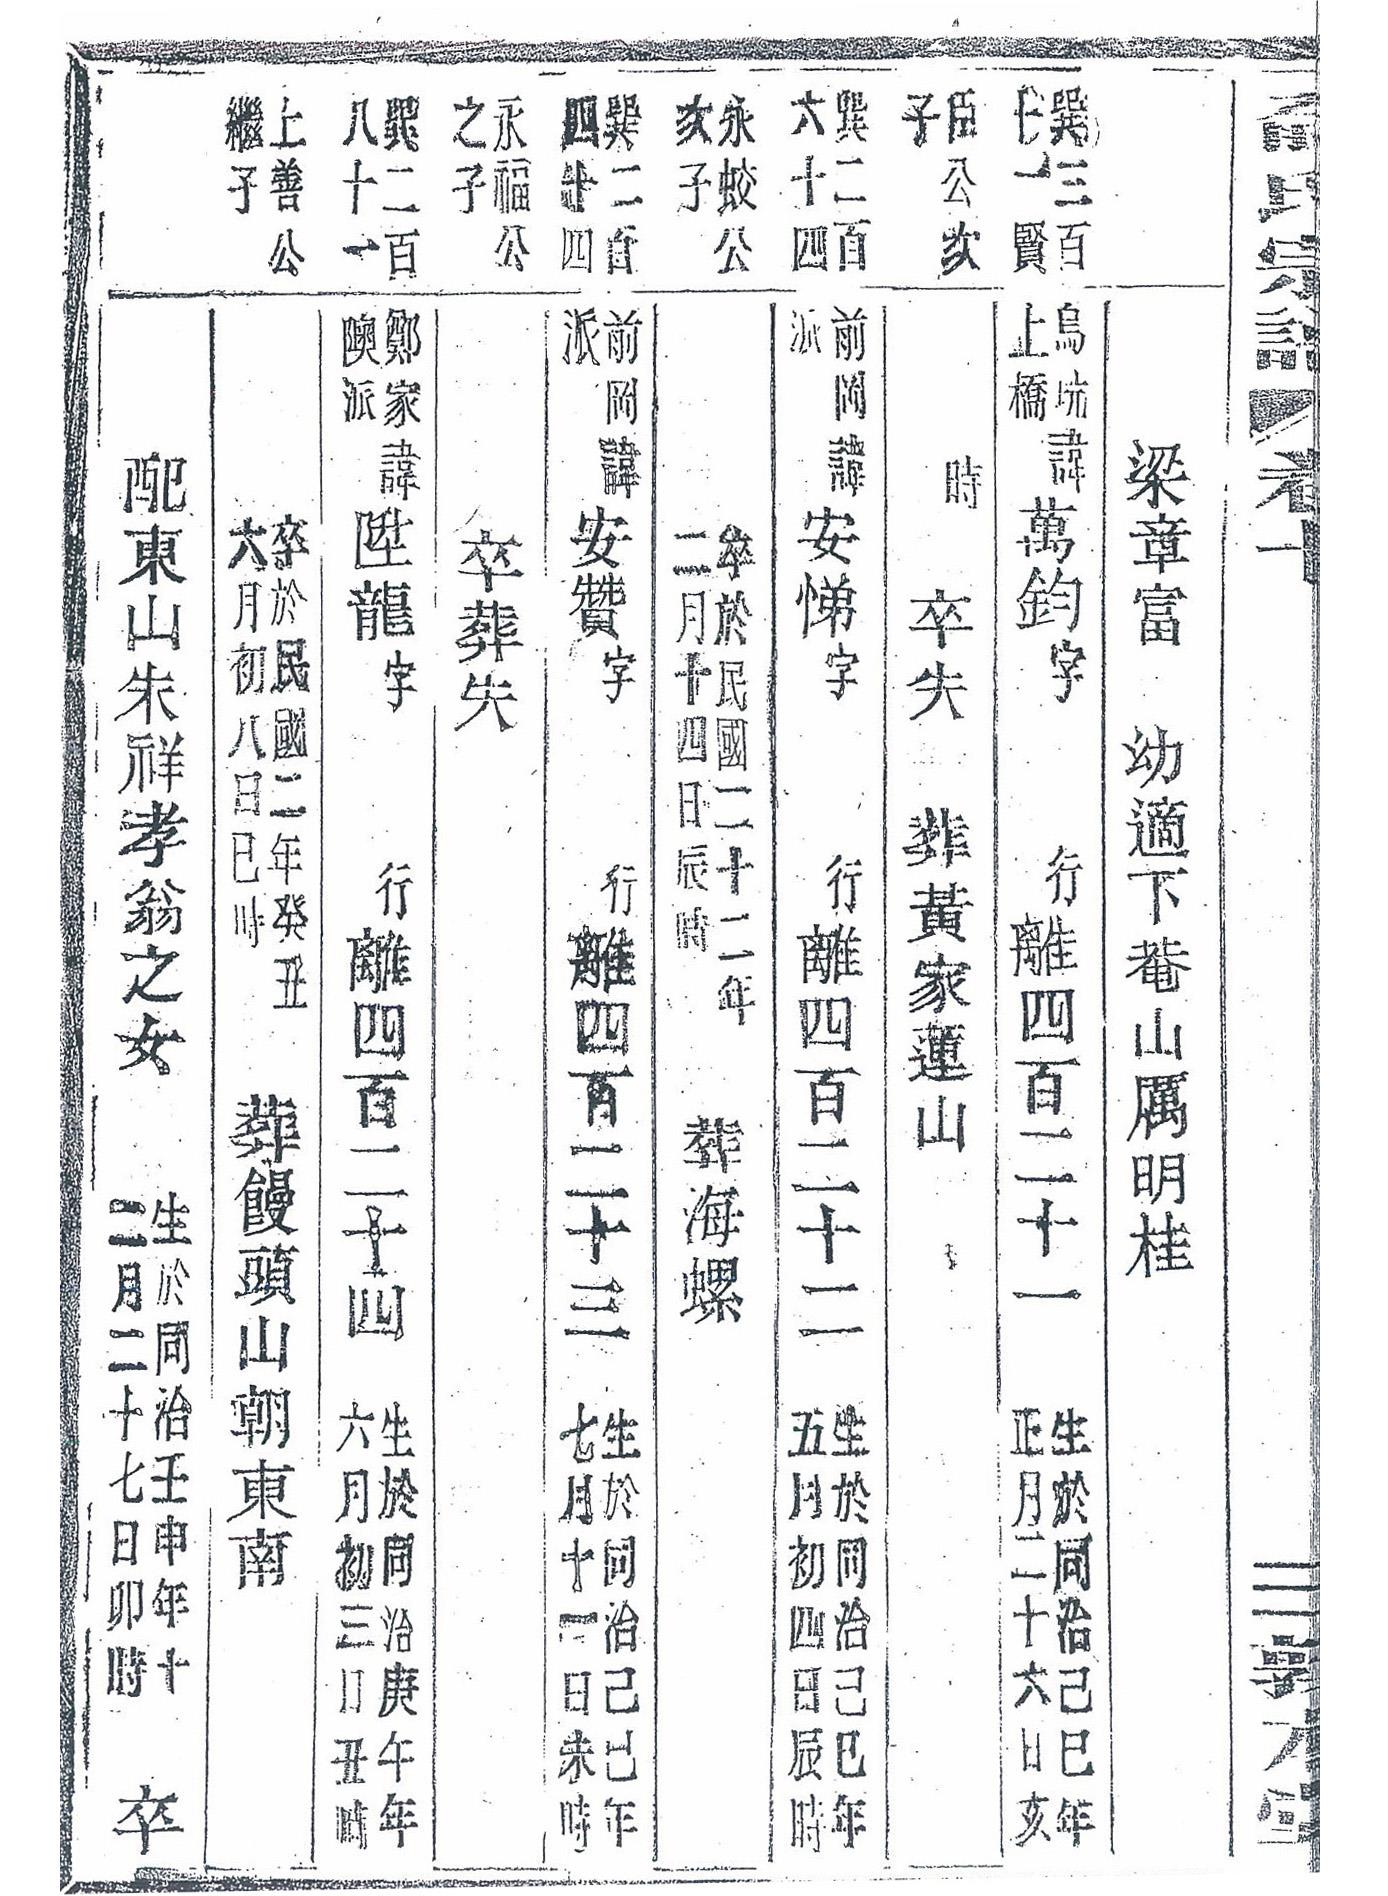 氏宗譜
卷十
三
梁章富　幼適下菴山厲明桂
巽三百
七一賢
烏坑
上橋
諱萬鈞字　行離四百二十一
生於同治己巳年
正月二十六日亥
臣公次
子
時　卒失　葬黃家蓮山
巽二百
六十四
前岡
派
諱安悌字　行離四百二十二
生於同治己巳年
五月初四日辰時
永蛟公
次子
卒於民國二十二年
二月十四日辰時
葬海螺
巽二百
四十四
前岡
派
諱安贊字　行離四百二十三
生於同治己巳年
七月十一日未時
永福公
之子
卒葬失
巽二百
八十一
鄭家
隩派
諱陞龍字　行離四百二十四
生於同治庚午年
六月初三日丑時
上善公
繼子
卒於民國二年癸丑
六月初八日巳時
葬饅頭山朝東南
配東山朱祥孝翁之女
生於同治壬申年十
二月二十七日卯時
卒